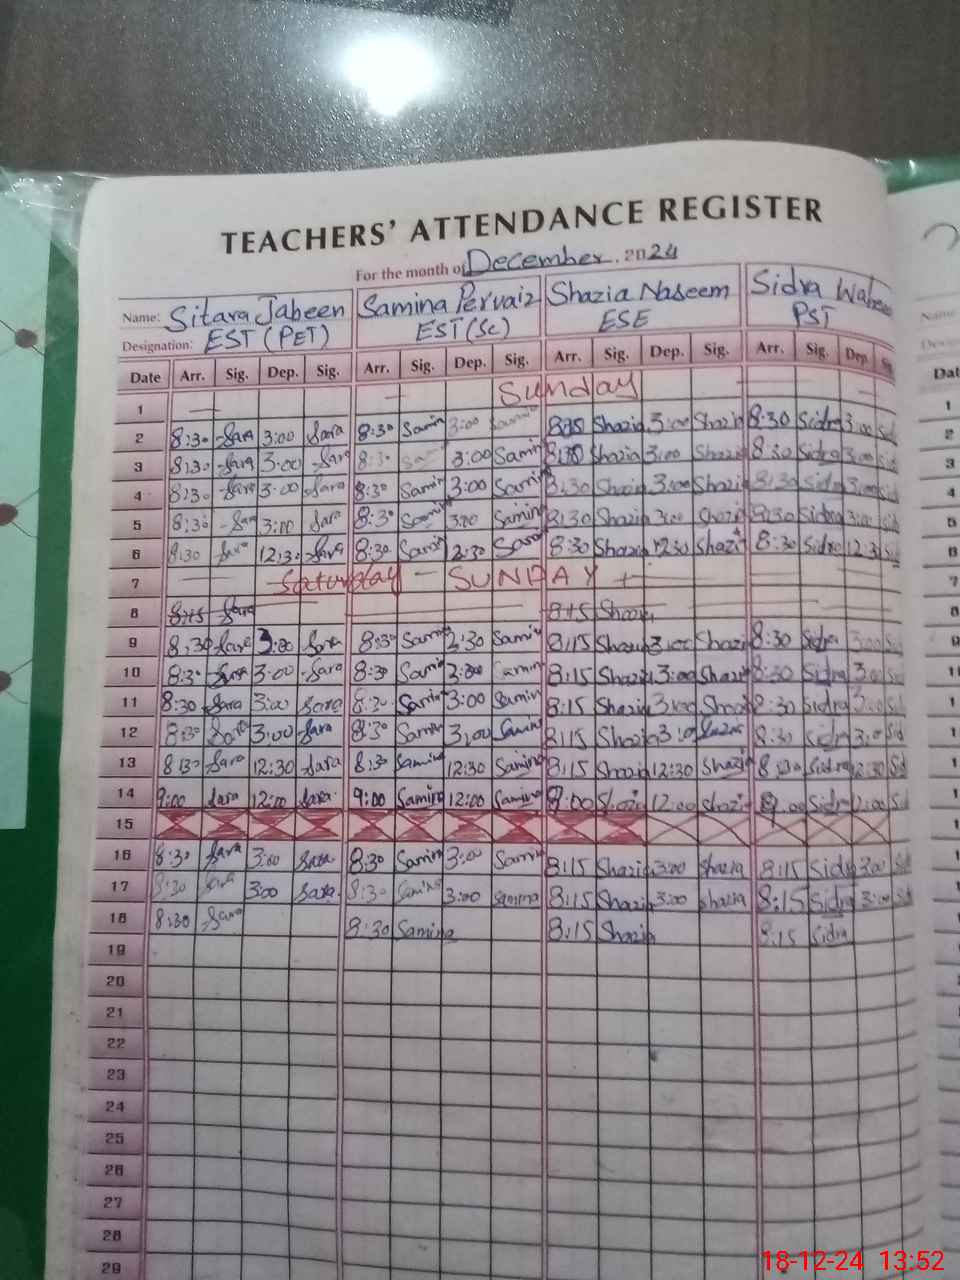 TEACHERS' ATTENDANCE REGISTER
For the month of December. 2024
Name: Sitara Jabeen Samina Pervaiz Shazia Naseem Sidra Waheed
Designation: EST (PET) EST (Sc) ESE PST
Date Arr. Sig. Dep. Sig. Arr. Sig. Dep. Sig. Arr. Sig. Dep. Sig. Arr. Sig. Dep.
1 Sunday
2 8:30 Sara 3:00 Sara 8:30 Samin 3:00 Samin Shazia 3:00 Shazia 8:30 Sidra 3:00 Sid
3 8:30 Sara 3:00 Sara 8:30 Sa 3:00 Samin Shazia 3:00 Shazia 8:30 Sidra 3:00 Sid
4 8:30 Sara 3:00 Sara 8:30 Samin 3:00 Samin 8:30 Shazia 3:00 Shazia 8:30 Sidra 3:00
5 8:30 Sara 3:00 Sara 8:30 Samin 3:00 Samin 8:30 Shazia 3:00 Shazia 8:30 Sidra 3:00 Sid
6 8:30 Sara 12:30 Sara 8:30 Samin 12:30 8:30 Shazia 12:30 Shazia 8:30 Sidra 12:3 Sid
7 Saturday - SUNDAY
8 8:15 Sara 8:15 Shazia
9 8:30 Sara 3:00 Sara 8:30 Samin 2:30 Samin 8:15 Shazia 3:00 Shazia 8:30 Sidra 3:00 Sid
10 8:30 Sara 3:00 Sara 8:30 Samin 3:00 Samin 8:15 Shazia 3:00 Shazia 8:30 Sidra 3:00 Sid
11 8:30 Sara 3:00 Sara 8:30 Samin 3:00 Samin 8:15 Shazia 3:00 Shazia 8:30 Sidra 3:00 Sid
12 8:30 Sara 3:00 Sara 8:30 Samin 3:00 Samin 8:15 Shazia 3:0 Shazia 8:30 Sidra 3:0 Sid
13 8:30 Sara 12:30 Sara 8:30 Samina 12:30 Samina 8:15 Shazia 12:30 Shazia 8:30 Sidra 12:30 Sid
14 9:00 Sara 12:00 Sara 9:00 Samina 12:00 Samina 9:00 Shazia 12:00 Shazia 9:00 Sidra 12:00 Sid
15
16 8:30 Sara 3:00 Sara 8:30 Samin 3:00 Samin 8:15 Shazia 3:00 Shazia 8:15 Sidra 3:00 Sid
17 8:30 Sara 3:00 Sara 8:30 Samina 3:00 Samina 8:15 Shazia 3:00 Shazia 8:15 Sidra 3:00 Sid
18 8:30 Sara 8:30 Samina 8:15 Shazia 8:15 Sidra
19
20
21
22
23
24
25
26
27
28
29
18-12-24 13:52